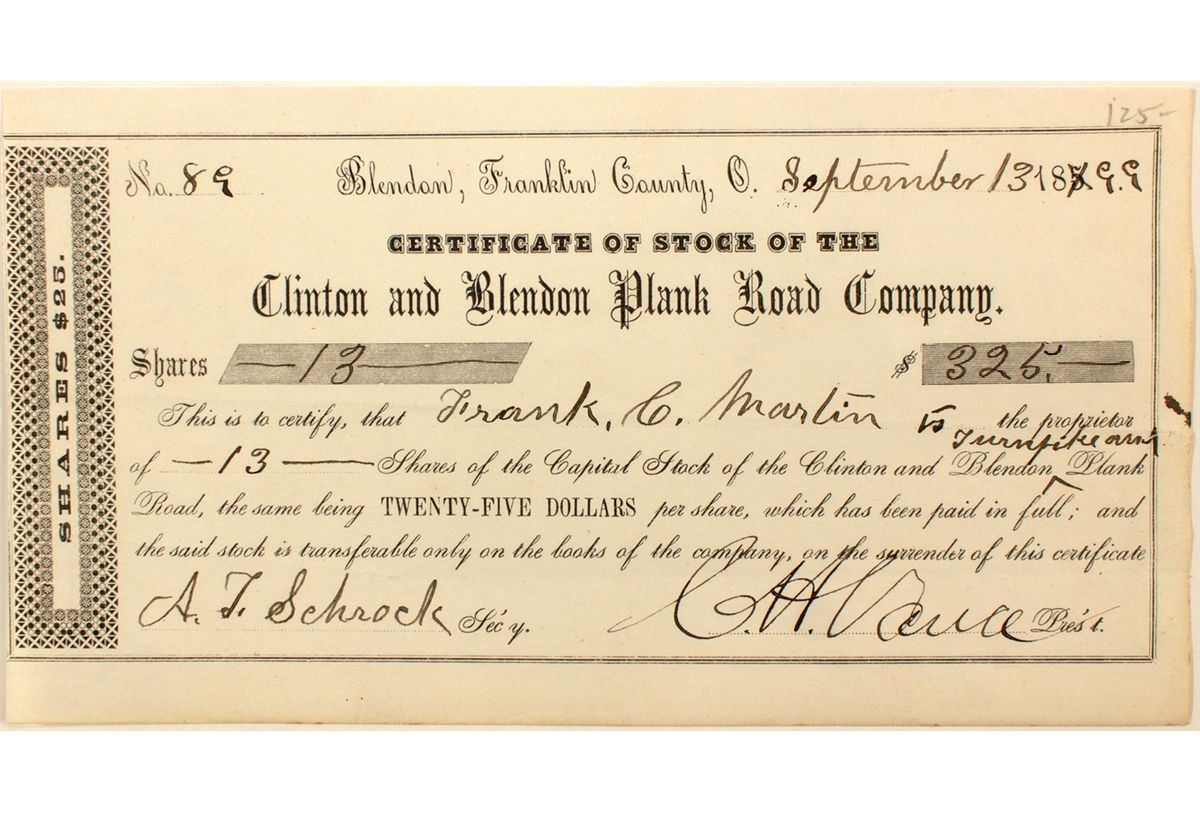 125-
No. 89 Blendon, Franklin County, O. September 13 1899
CERTIFICATE OF STOCK OF THE
Clinton and Blendon Plank Road Company.
SHARES $25.
Shares —13— $ 325.—
This is to certify, that Frank. C. Martin is the proprietor
Turnpike and
of —13— Shares of the Capital Stock of the Clinton and Blendon Plank
Road, the same being TWENTY-FIVE DOLLARS per share, which has been paid in full; and
the said stock is transferable only on the books of the company, on the surrender of this certificate
A. T. Schrock Sec'y. C. H. Pres't.